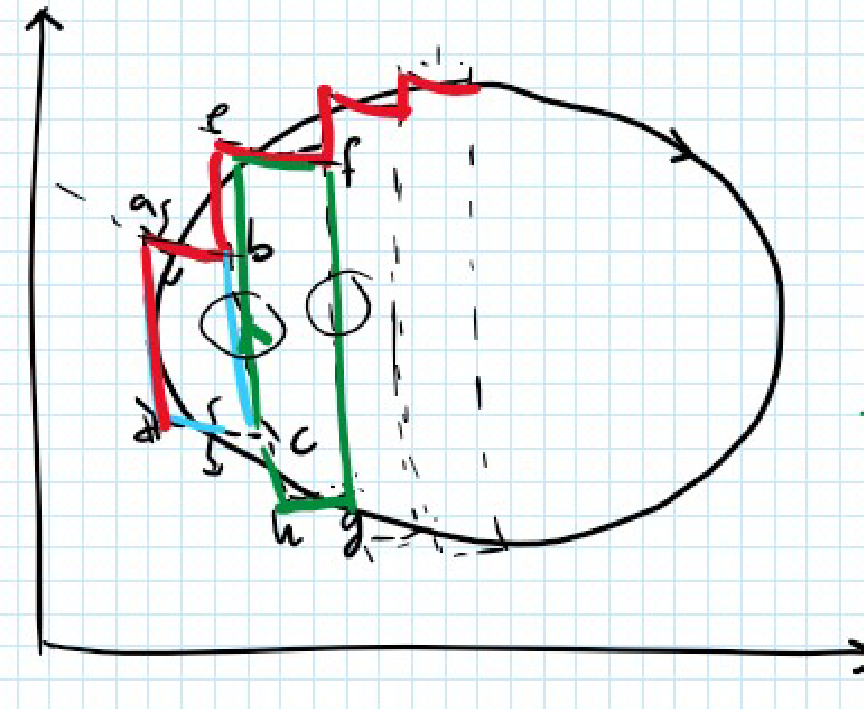 e
f
a
b
d
c
h
g